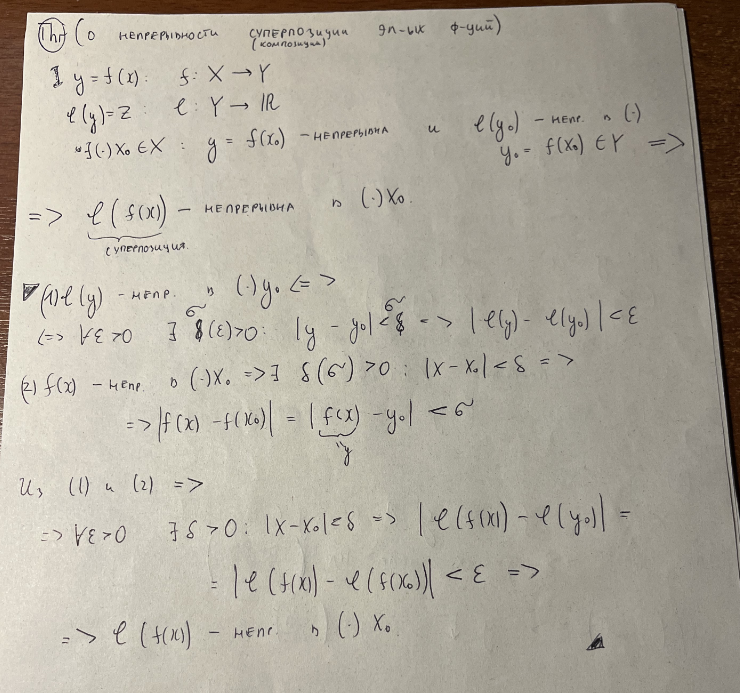 Thm (о непрерывности суперпозиции эл-ых ф-ций)
(композиции)
] y = f(x): f: X → Y
φ(y) = z: φ: Y → ℝ
∃(·) x₀ ∈ X: y = f(x₀) – непрерывна и φ(y₀) – непр. в (·)
y₀ = f(x₀) ∈ Y =>
=> φ(f(x)) – непрерывна в (·) x₀.
суперпозиция.
(1) φ(y) – непр. в (·) y₀ <=>
<=> ∀ε>0 ∃ σ(ε)>0: |y – y₀| < σ => |φ(y) – φ(y₀)| < ε
(2) f(x) – непр. в (·) x₀ => ∃ δ(σ) > 0: |x – x₀| < δ =>
=> |f(x) – f(x₀)| = |f(x) – y₀| < σ
"y
Из (1) и (2) =>
=> ∀ε>0 ∃ δ > 0: |x – x₀| < δ => |φ(f(x)) – φ(y₀)| =
= |φ(f(x)) – φ(f(x₀))| < ε =>
=> φ(f(x)) – непр. в (·) x₀.